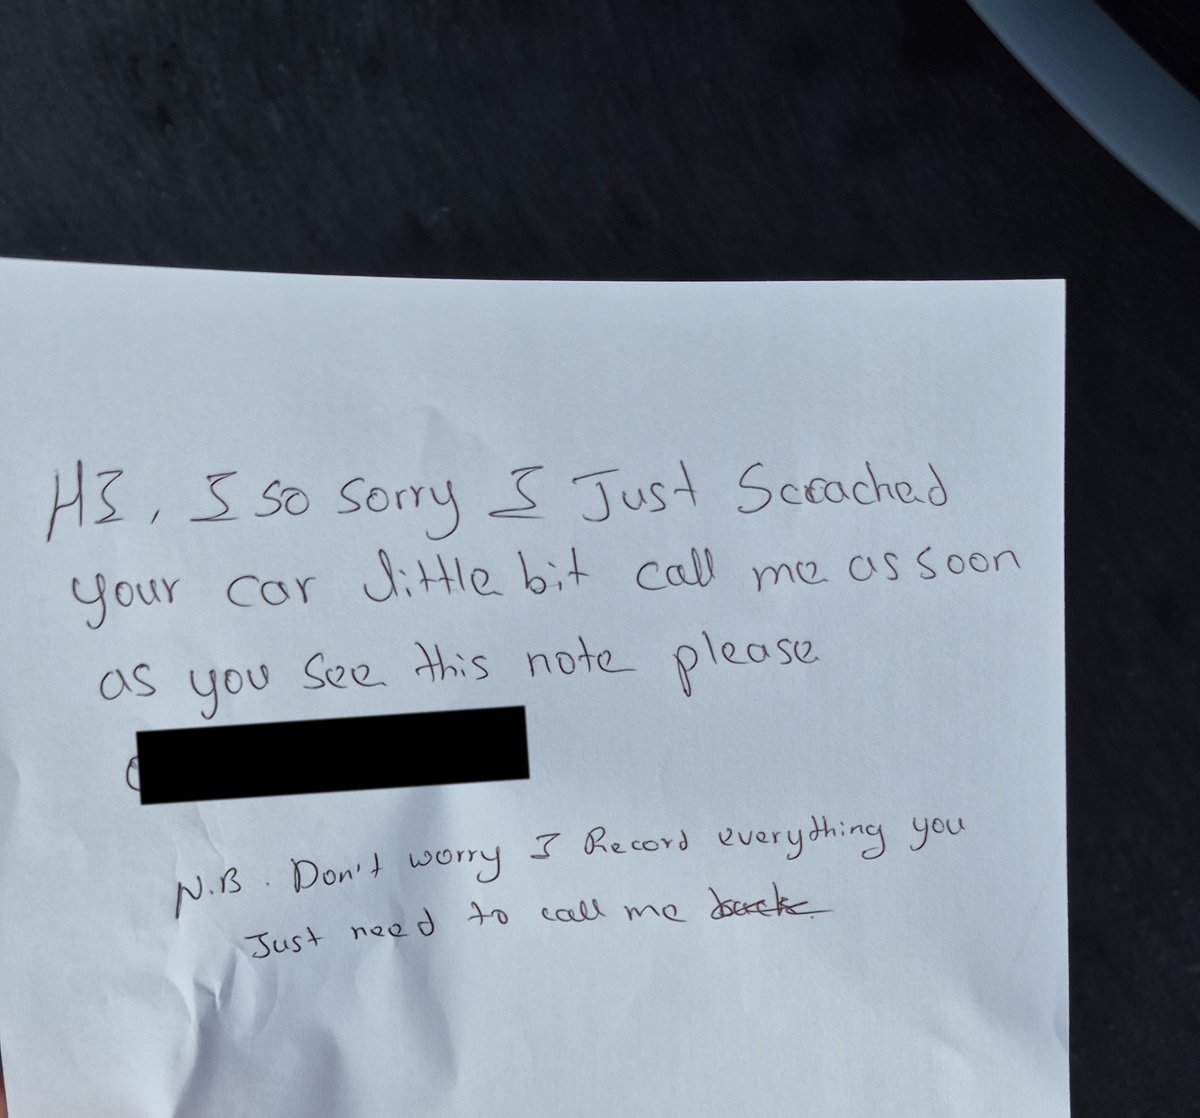 HI, I so sorry I Just Scrached
your car little bit call me as soon
as you see this note please
N.B. Don't worry I Record everything you
Just need to call me back